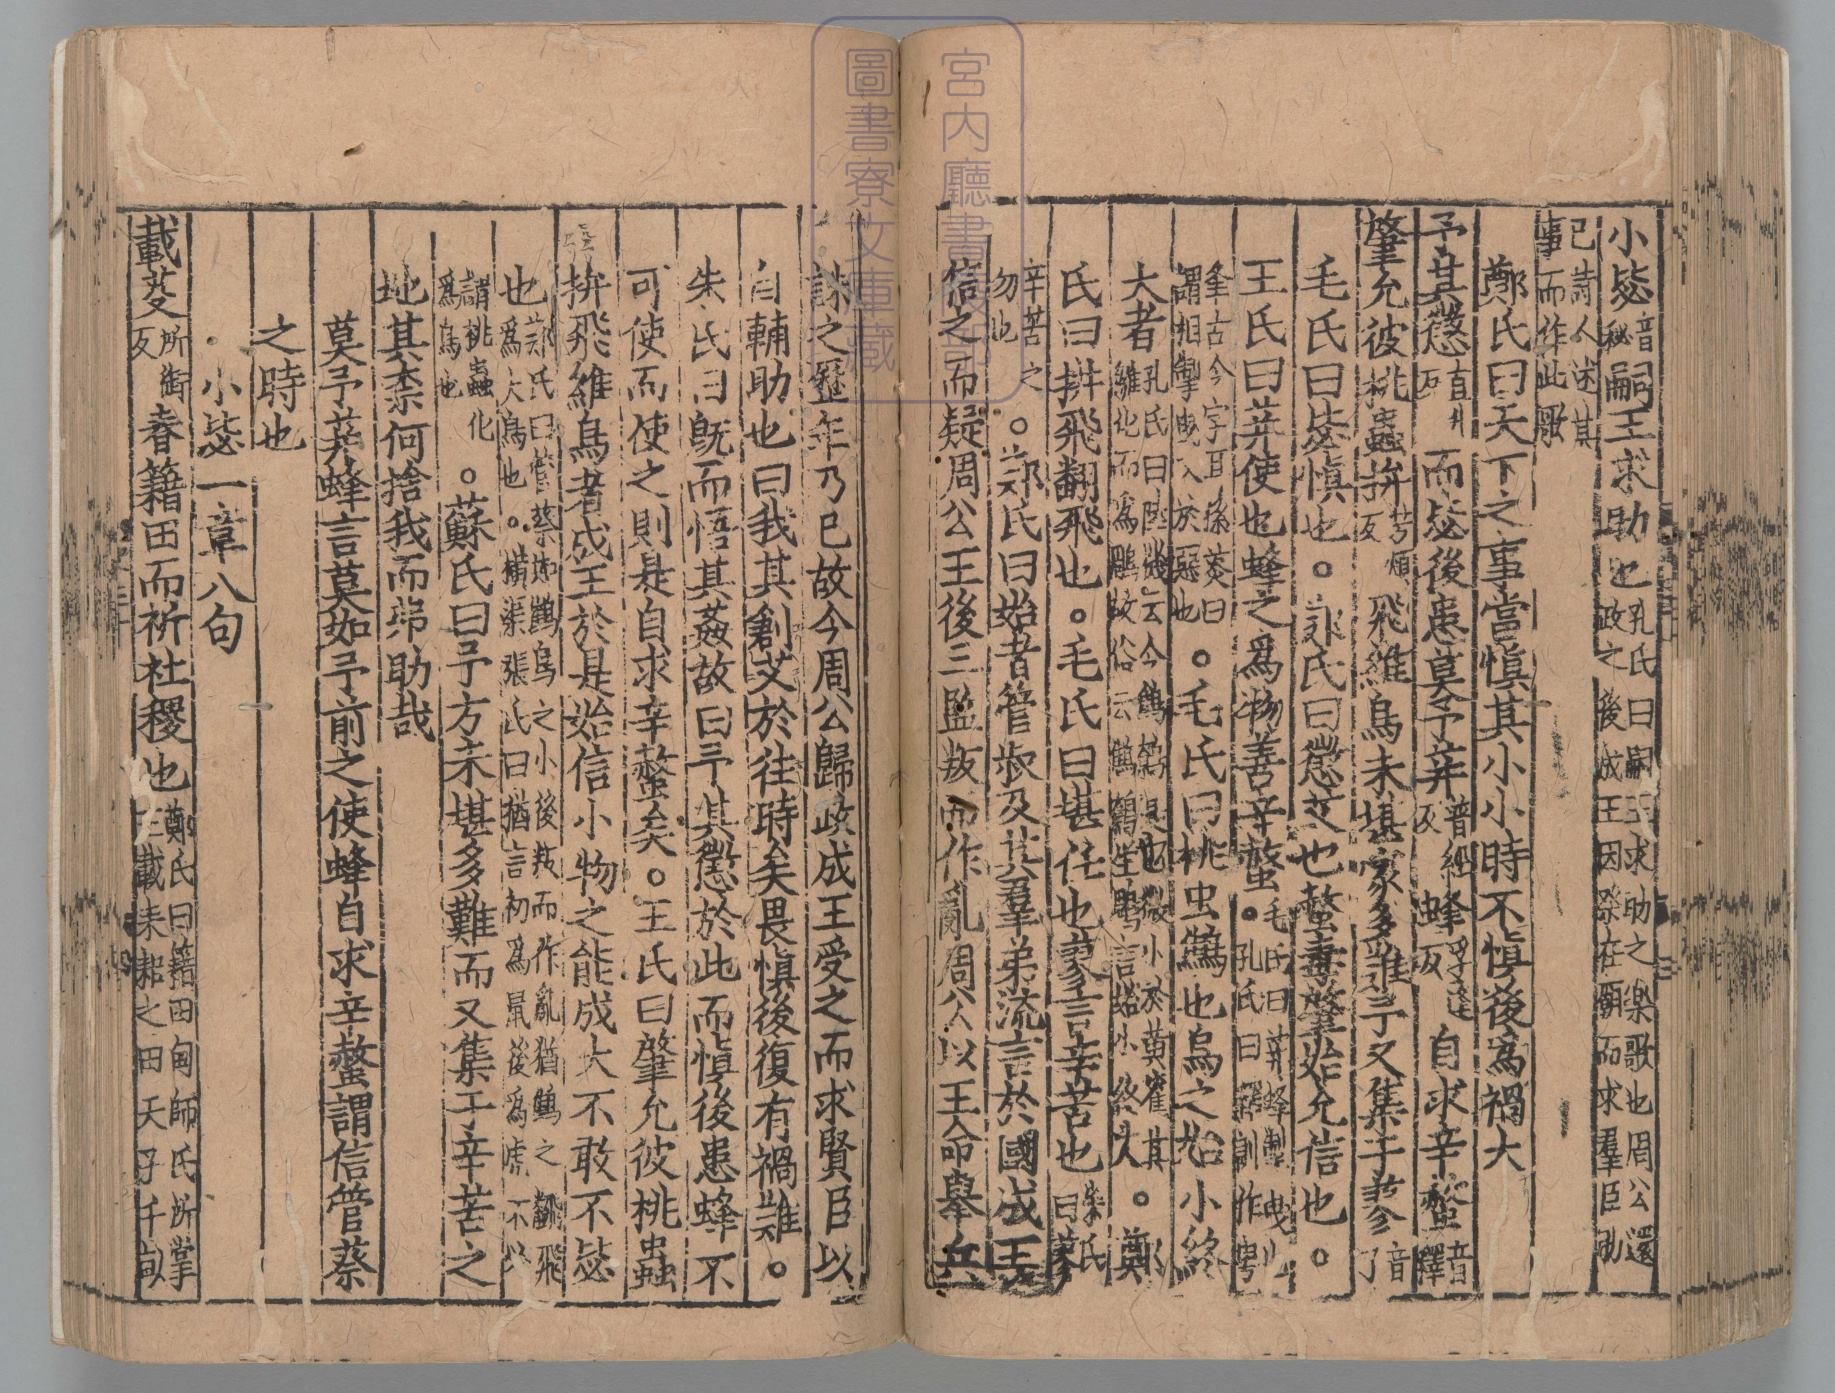 小毖音秘嗣王求助也孔氏曰嗣王求助之樂歌也周公還政之後成王因祭在廟而求羣臣助
己詩人述其事而作此歌
鄭氏曰天下之事當慎其小小時不慎後為禍大
予其懲直升反而毖後患莫予荓普經反蜂孚逢反自求辛螫音釋
肇允彼桃蟲拚芳煩反飛維鳥未堪家多難予又集于蓼音了
毛氏曰毖慎也。鄭氏曰懲艾也螫毒肇始允信也。
王氏曰荓使也蜂之爲物善辛螫毛氏曰荓蜂掣曳也。孔氏曰釋訓作甹
夆古今字耳孫炎曰謂相掣曳入於惡也。毛氏曰桃虫鷦也鳥之始小終
大者孔氏曰陸璣云今鷦鷯是也微小於黃雀其雛化而爲鵰故俗云鷦鷯生鵰言始小終大。鄭
氏曰拚飛翻飛也。毛氏曰堪任也蓼言辛苦也朱氏曰蓼
辛苦之物也。鄭氏曰始者管叔及其羣弟流言於國成王
信之而疑周公王後三監叛而作亂周公以王命舉兵
誅之歷年乃已故今周公歸政成王受之而求賢臣以
自輔助也曰我其創艾於往時矣畏慎後復有禍難。
朱氏曰旣而悟其姦故曰予其懲於此而慎後患蜂不
可使而使之則是自求辛螫矣。王氏曰肇允彼桃蟲
拚飛維鳥者成王於是始信小物之能成大不敢不毖
也鄭氏曰管蔡如鷦鳥之小後叛而作亂猶鷦之翻飛爲大鳥也。橫渠張氏曰猶言初爲鼠後爲虎不必
謂桃蟲化爲鳥也。蘇氏曰予方未堪多難而又集于辛苦之
地其柰何捨我而弗助哉
莫予荓蜂言莫如予前之使蜂自求辛螫謂信管蔡
之時也
小毖一章八句
載芟所銜反春籍田而祈社稷也鄭氏曰籍田甸師氏所掌王載耒耜之田天子千畝
宮内廳書陵部
圖書寮文庫藏